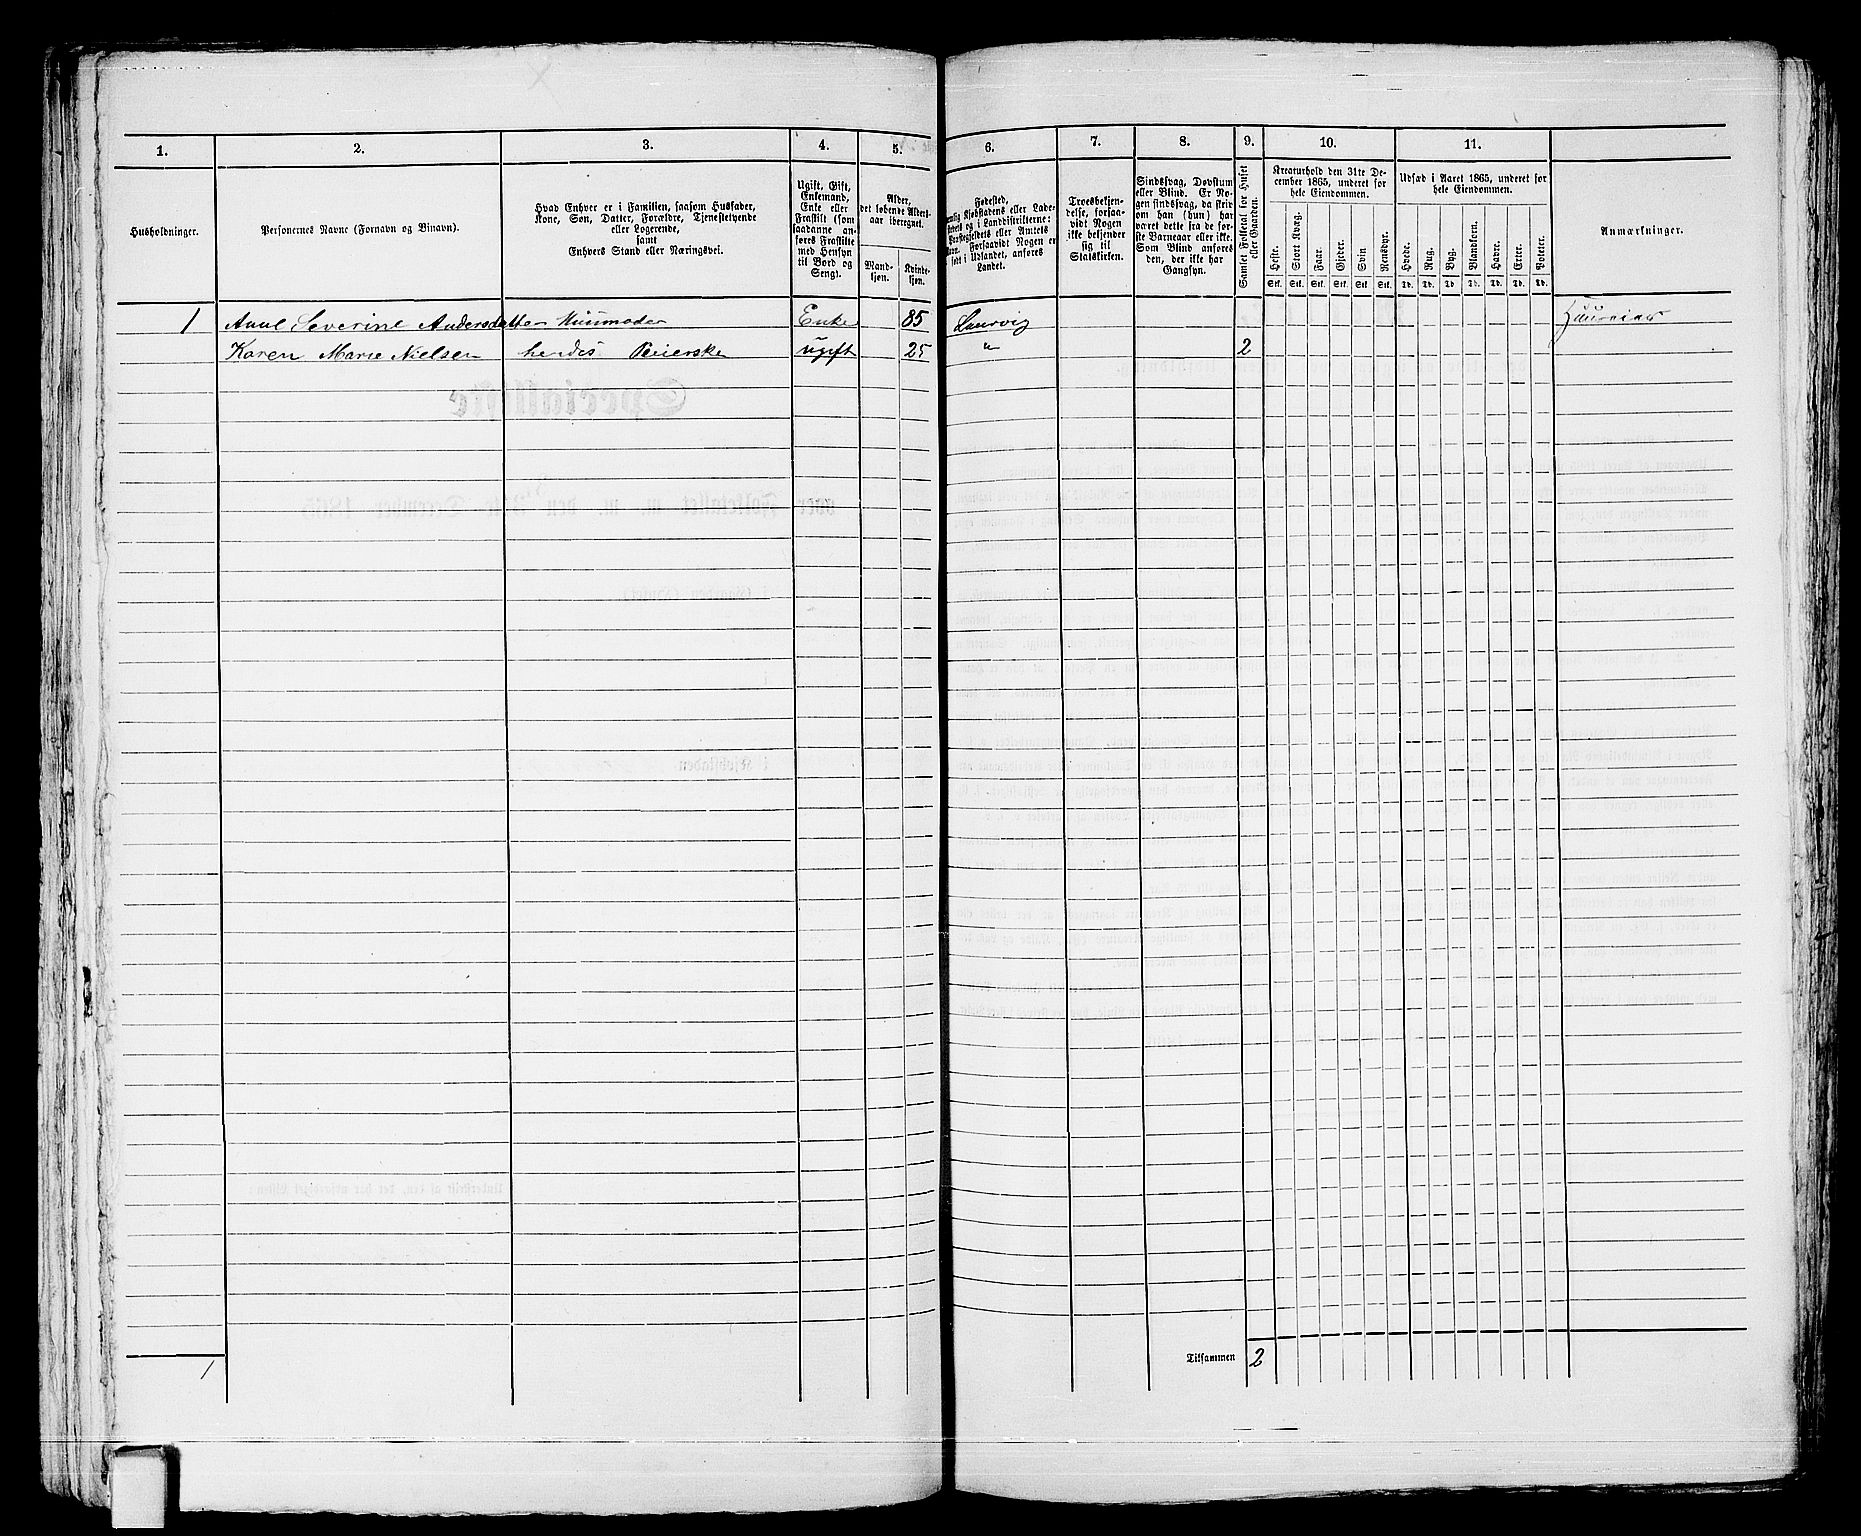 1. 2. 3. 4. 5. 6. 7. 8. 9. 10. 11.
Husholdninger.
Personernes Navne (Fornavn og Binavn).
Hvad Enhver er i Familien, saasom Husfader,
Kone, Søn, Datter, Forældre, Tjenestetyende
eller Logerende,
samt
Enhvers Stand eller Næringsvei.
Ugift, Gift,
Enkemand,
Enke eller
Fraskilt (som
saadanne an-
føres Fraskilte
med Hensyn
til Bord og
Seng).
Alder,
det løbende Alders-
aar iberegnet.
Mand-
kjøn.
Kvinde-
kjøn.
Fødested,
Kjøbstadens eller Lade-
i Landdistrikterne:
eller Amtets
Forsaavidt Nogen er
født i Udlandet, anføres
Landet.
Troesbekjen-
delse, forsaa-
vidt Nogen
ikke bekjender
sig til
Statskirken.
Sindssvag, Døvstum
eller Blind. Er No-
gen sindssvag, da skriv
om han (hun) har
været dette fra de før-
ste Barneaar eller ikke.
Som Blind anføres
den, der ikke har
Gangsyn.
Samlet Folketal for Huset
eller Gaarden.
Kreaturhold den 31te De-
cember 1865, underet for
hele Eiendommen.
Heste. Stort Kvæg. Faar. Gjeder. Svin Rensdyr.
Stk. Stk. Stk. Stk. Stk. Stk.
Udsæd i Aaret 1865, underet for
hele Eiendommen.
Hvede. Rug. Byg. Blandkorn. Havre. Erter. Poteter.
Td. Td. Td. Td. Td. Td. Td.
Anmærkninger.
1 Anne Severine Andersdatter Huusmoder Enke 85 Laurvig Huuseier
Karen Marie Nielsen hendes Pleierske ugift 25 " 2
1 Tilsammen 2